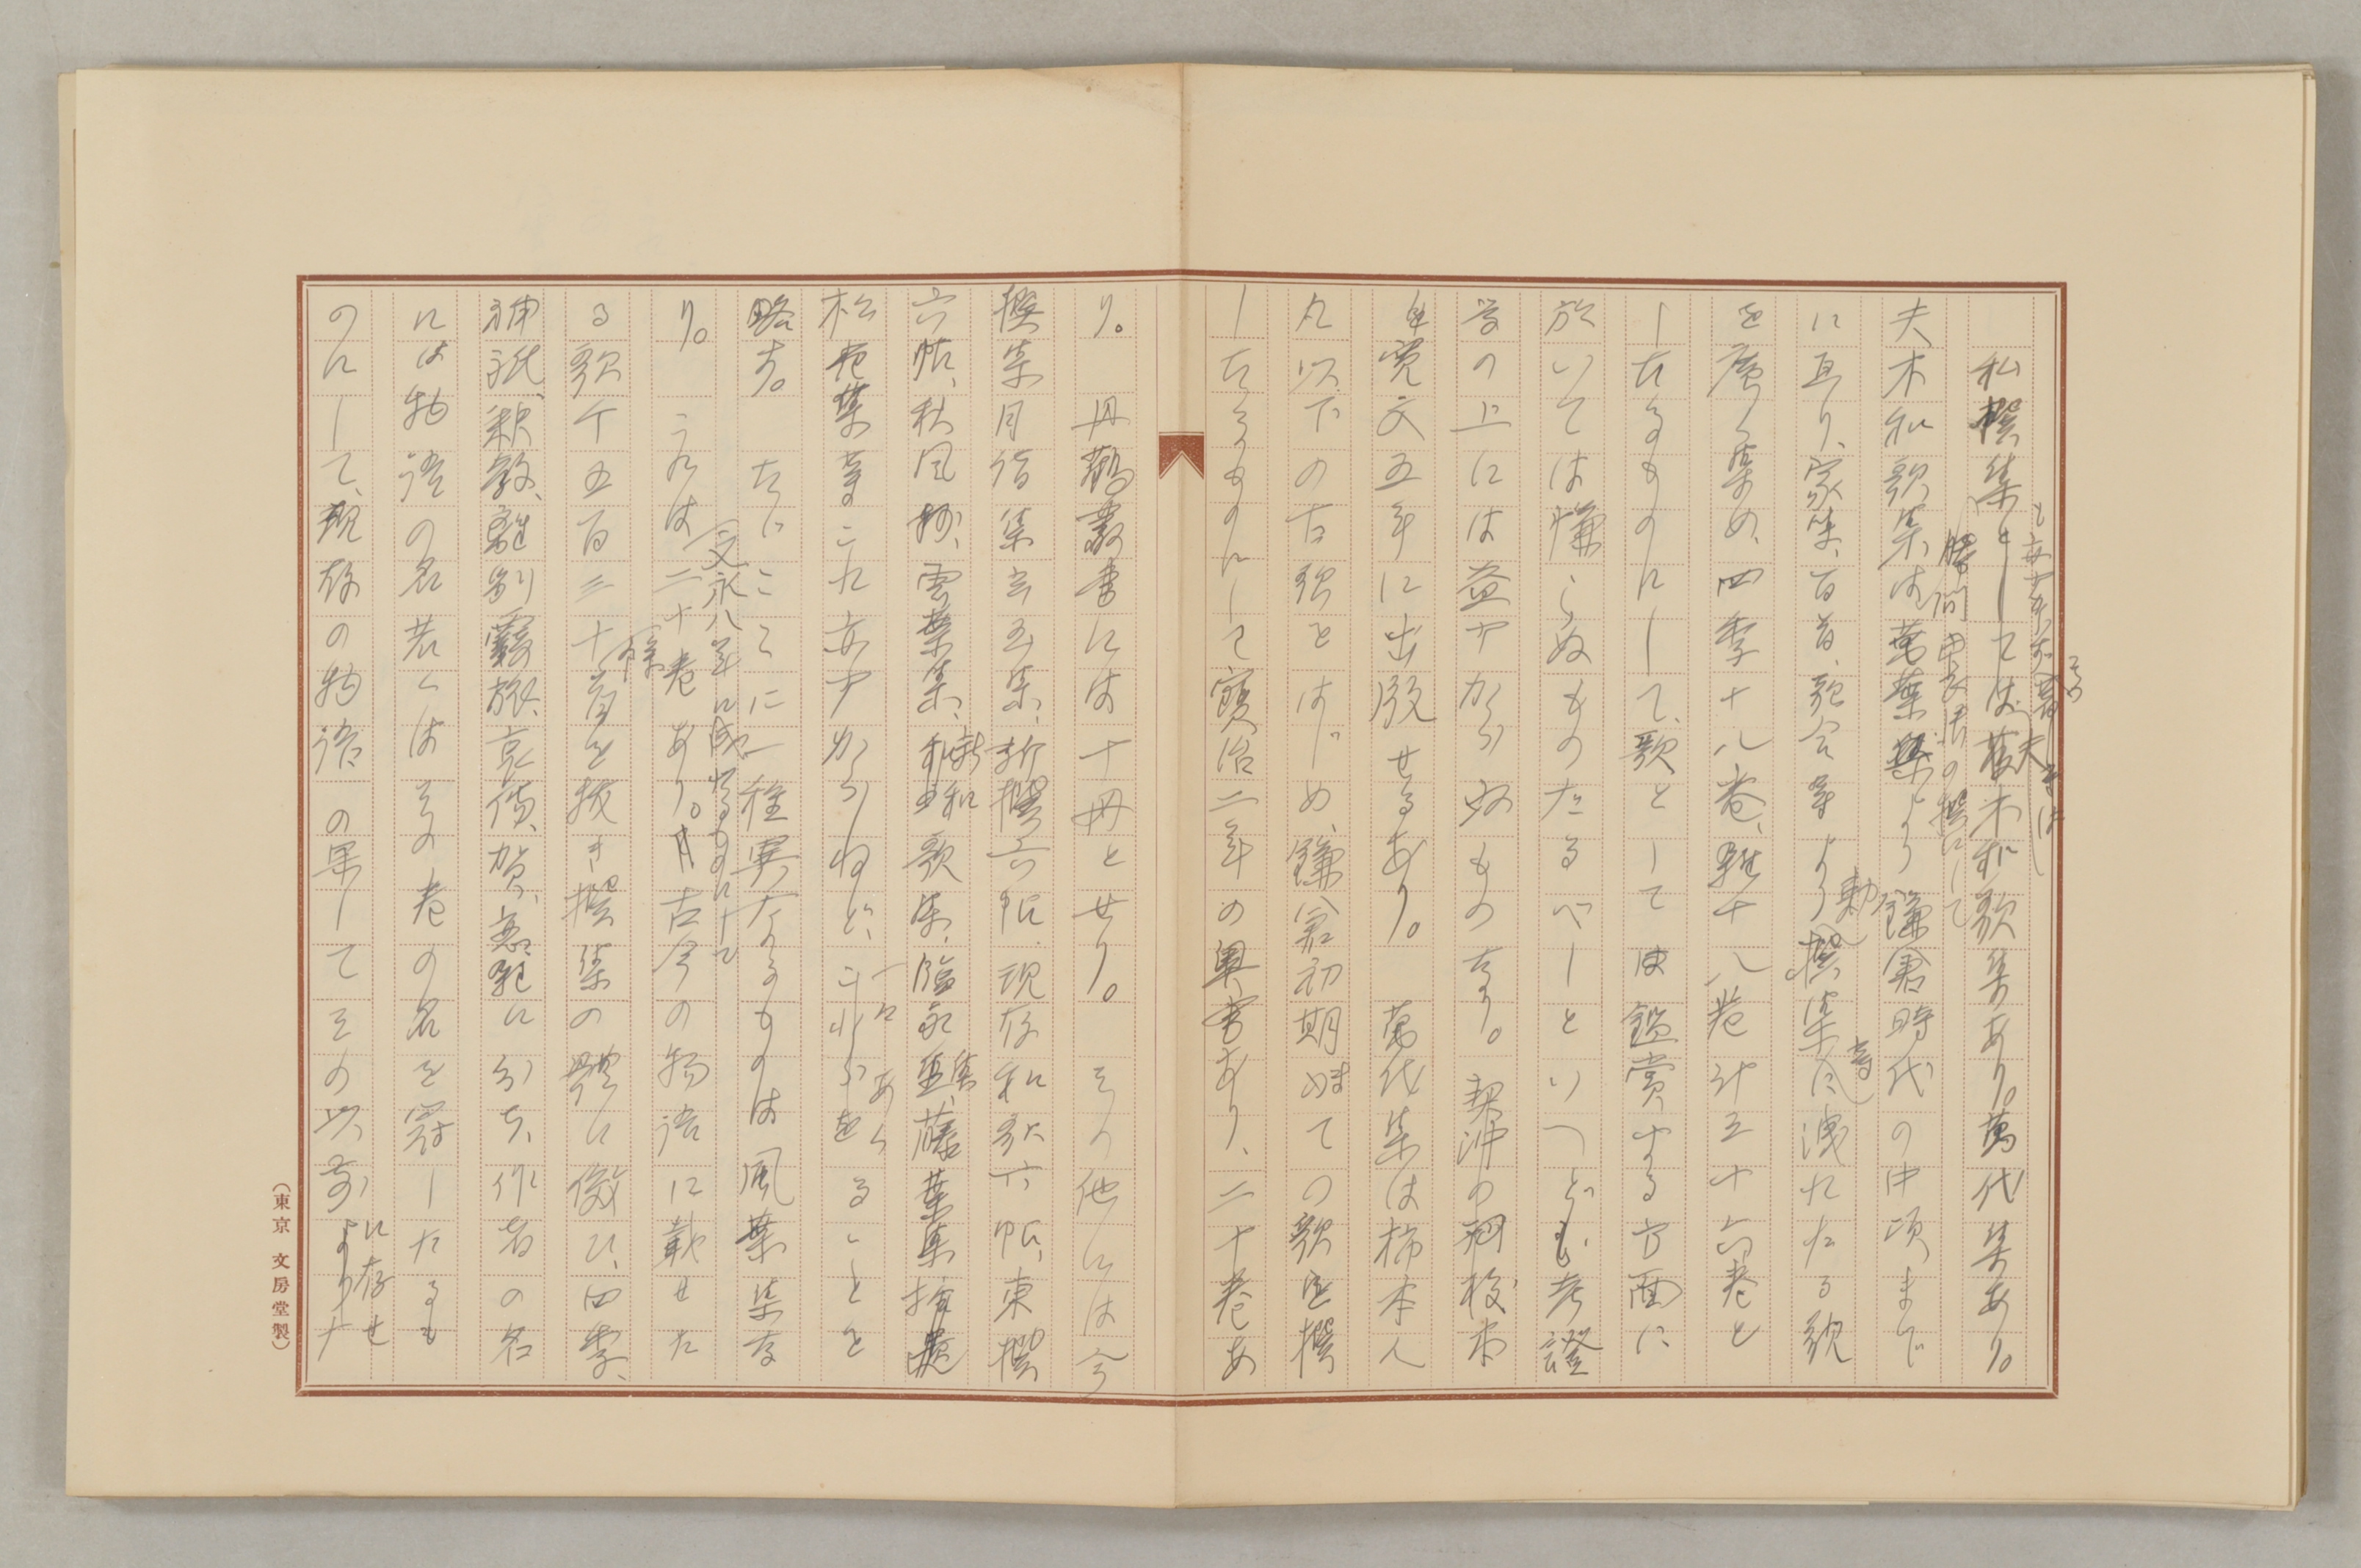 私撰集としては夫木和歌集あり。萬代集あり。
勝間田長清の撰にして
夫木和歌集は萬葉集より鎌倉時代の中頃まで
に亙り、家集、百首、歌合等より勅撰集に洩れたる歌
を廣く集め、四季十八巻、雜十八巻計三十六巻と
したるものにして、歌としては鑑賞する方面に
於いては慊らぬものたるべしといへども、考證
学の上には益少からぬものなり。契沖の詞校本
寛文五年に出版せるあり。萬代集は柿本人
丸以下の古歌をはじめ、鎌倉初期までの歌を撰
したるものにして寶治二年の奥書あり、二十巻あ
り。丹鶴叢書には十冊とせり。その他には今
撰集月詣集玄玉集、新撰六帖、現存和歌六帖、東撰
六帖、秋風抄、雲葉集、新和歌集、臨永集、藤葉集
松花集等これ亦少からねど、一々あらることを
略す。なほここに一種異なるものは風葉集な
り。これは二十巻あり。古今の物語に載せた
文永八年に成れるものにして
る歌千五百三十餘首を抜き撰集の體に傚ひ、四季、
神祇、釈教、離別、羇旅、哀傷、賀、戀、雜に分ち、作者の名
には物語の名若くはその巻の名を冩したるも
のにして、現存の物語の果してその以前に存せ
（東京 文房堂製）